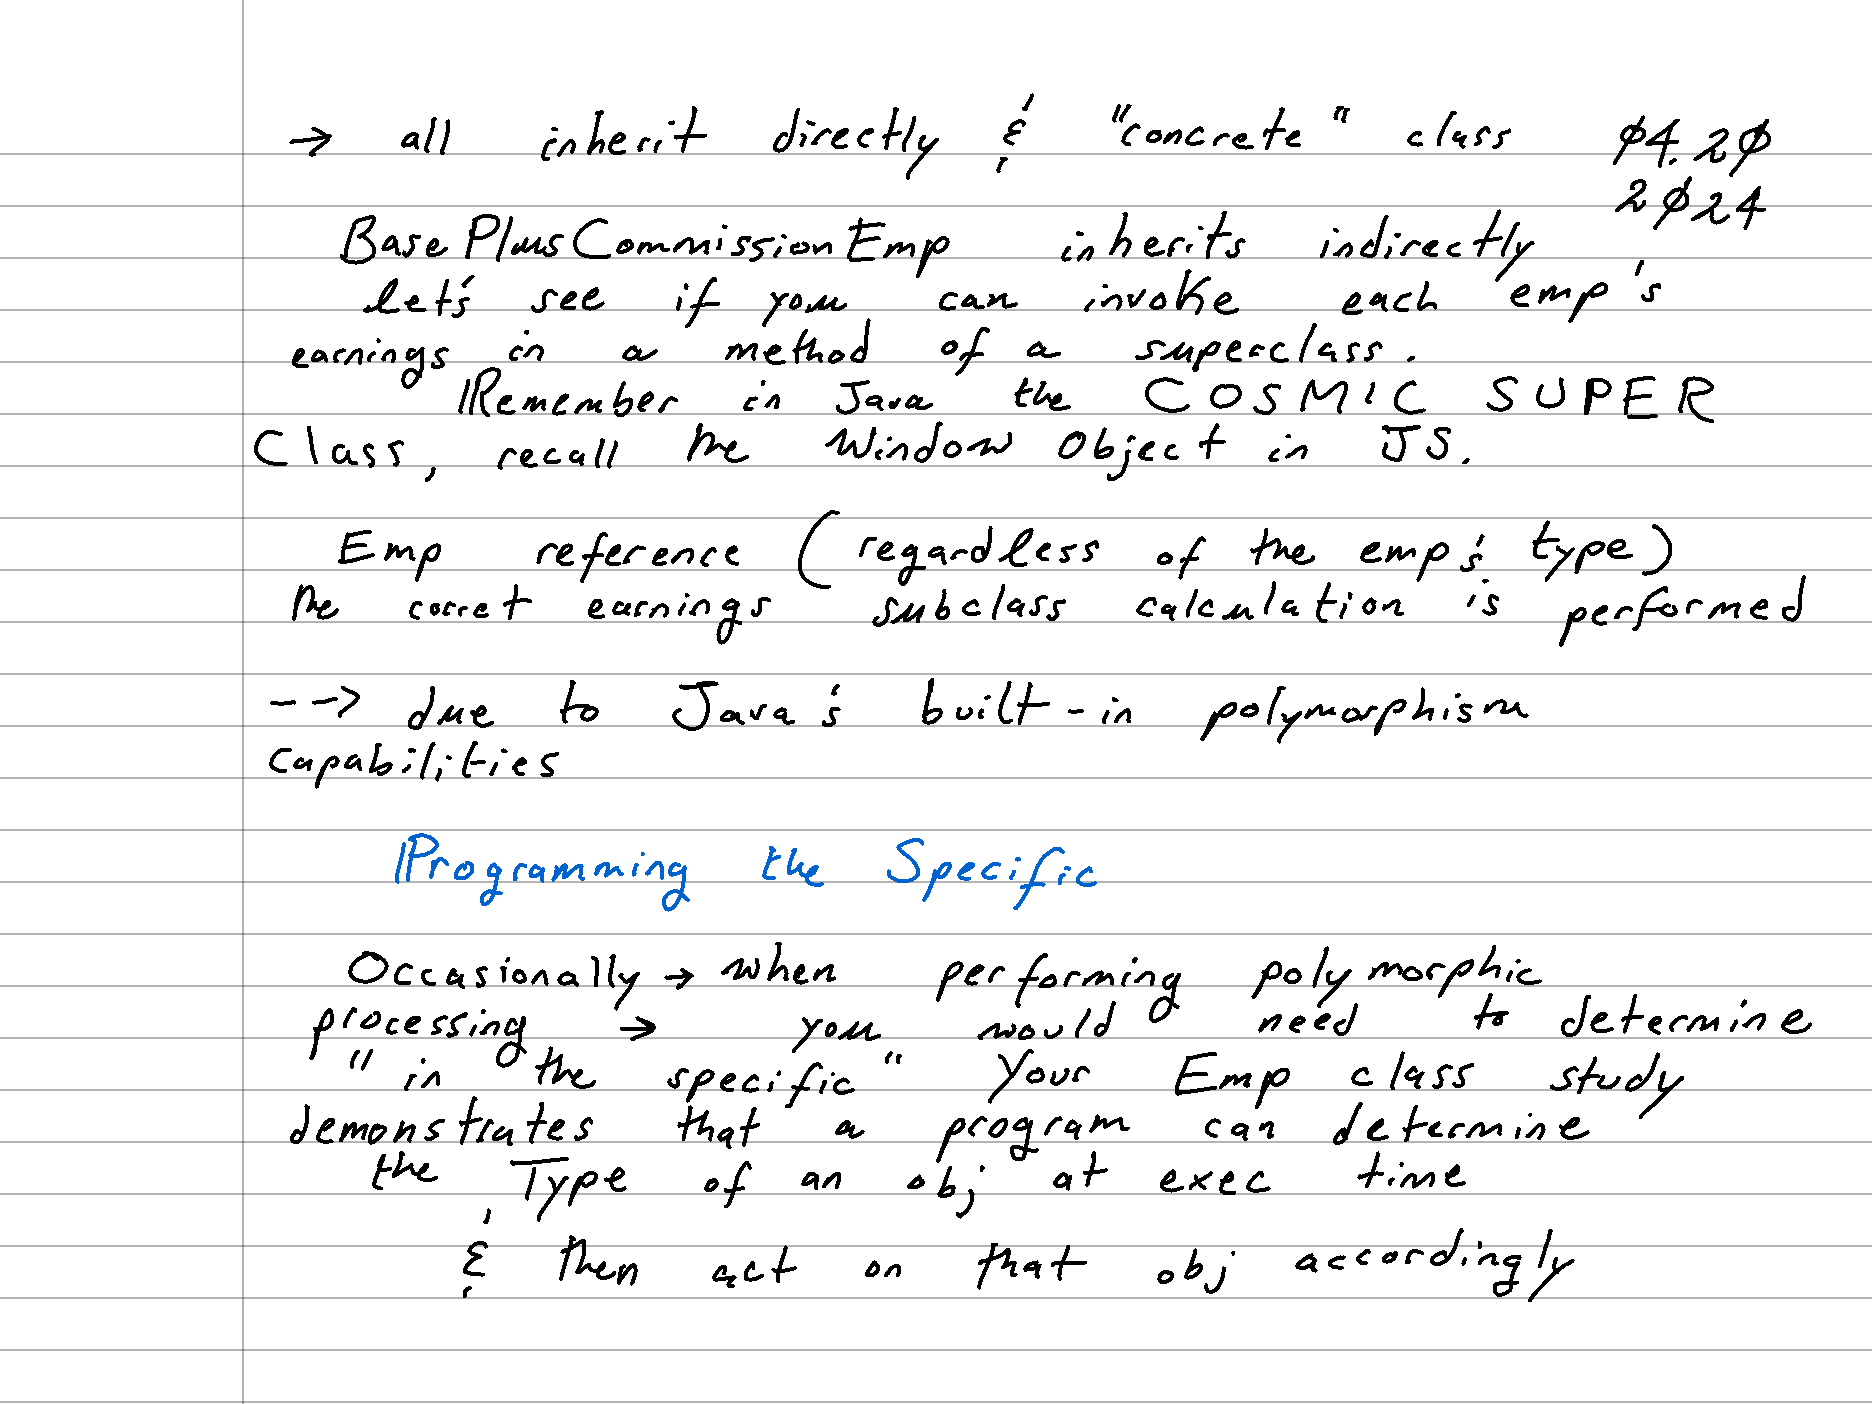 → all inherit directly & "concrete" class Ø4.2Ø
2Ø24
BasePlusCommissionEmp inherits indirectly
let's see if you can invoke each emp's
earnings in a method of a superclass.
Remember in Java the COSMIC SUPER
Class, recall the Window Object in JS.
Emp reference (regardless of the emp's type)
the corret earnings subclass calculation is performed
--> due to Java's built-in polymorphism
capabilities
Programming the Specific
Occasionally → when performing polymorphic
processing → you would need to determine
"in the specific" Your Emp class study
demonstrates that a program can determine
the Type of an obj at exec time
& then act on that obj accordingly